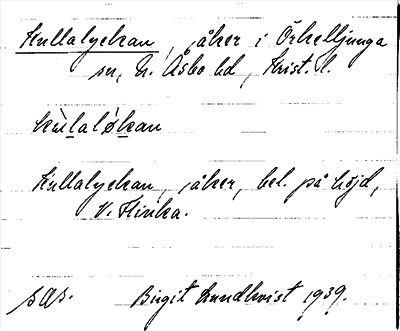 Kullalyckan, åker i Örkelljunga
sn, N. Åsbo hd, Krist. l.
kùlaløkan
Kullalyckan, åker, bel. på höjd,
V. Flinka.
SAS. Birgit Lundkvist 1939.